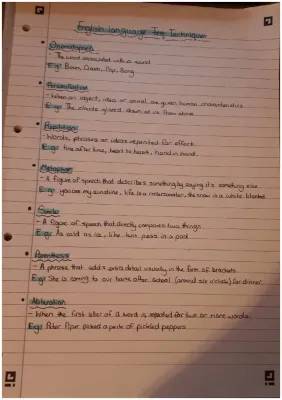 English language Key Techniques
Onomatopoeia
- The word associated with a sound
E.g: Boom, Crash, Pop, Bang
Personification
- When an object, idea or animal are given human characteristics
E.g: The clouds glared down at us from above.
Repetition
- Words, phrases or ideas repeated for effect.
E.g: time after time, heart to heart, hand in hand.
Metaphor
- A figure of speech that describes something by saying it's something else
E.g: you are my sunshine, life is a rollercoaster, the snow is a white blanket.
Simile
- A figure of speech that directly compares two things
E.g: As cold as ice, like two peas in a pod.
Parenthesis
- A phrase that adds extra detail usually in the form of brackets.
E.g: She is coming to our home after school (around six o'clock) for dinner.
Alliteration
- When the first letter of a word is repeated for two or more words.
E.g: Peter Piper picked a peck of pickled peppers